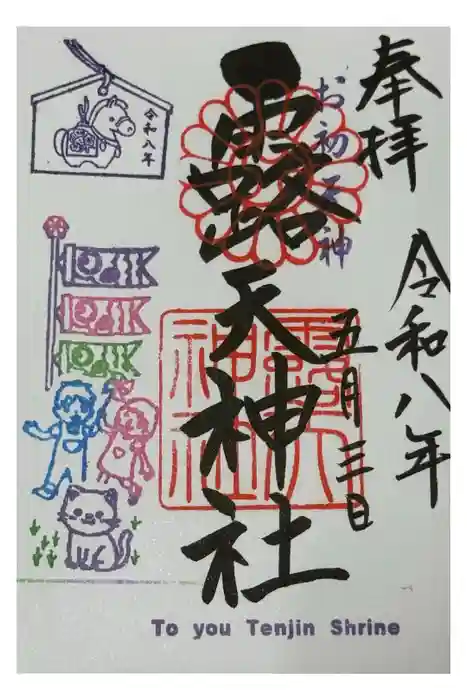 奉拝
令和八年
五月三日
お初天神
露天神社
露天神社
令和八年
To you Tenjin Shrine